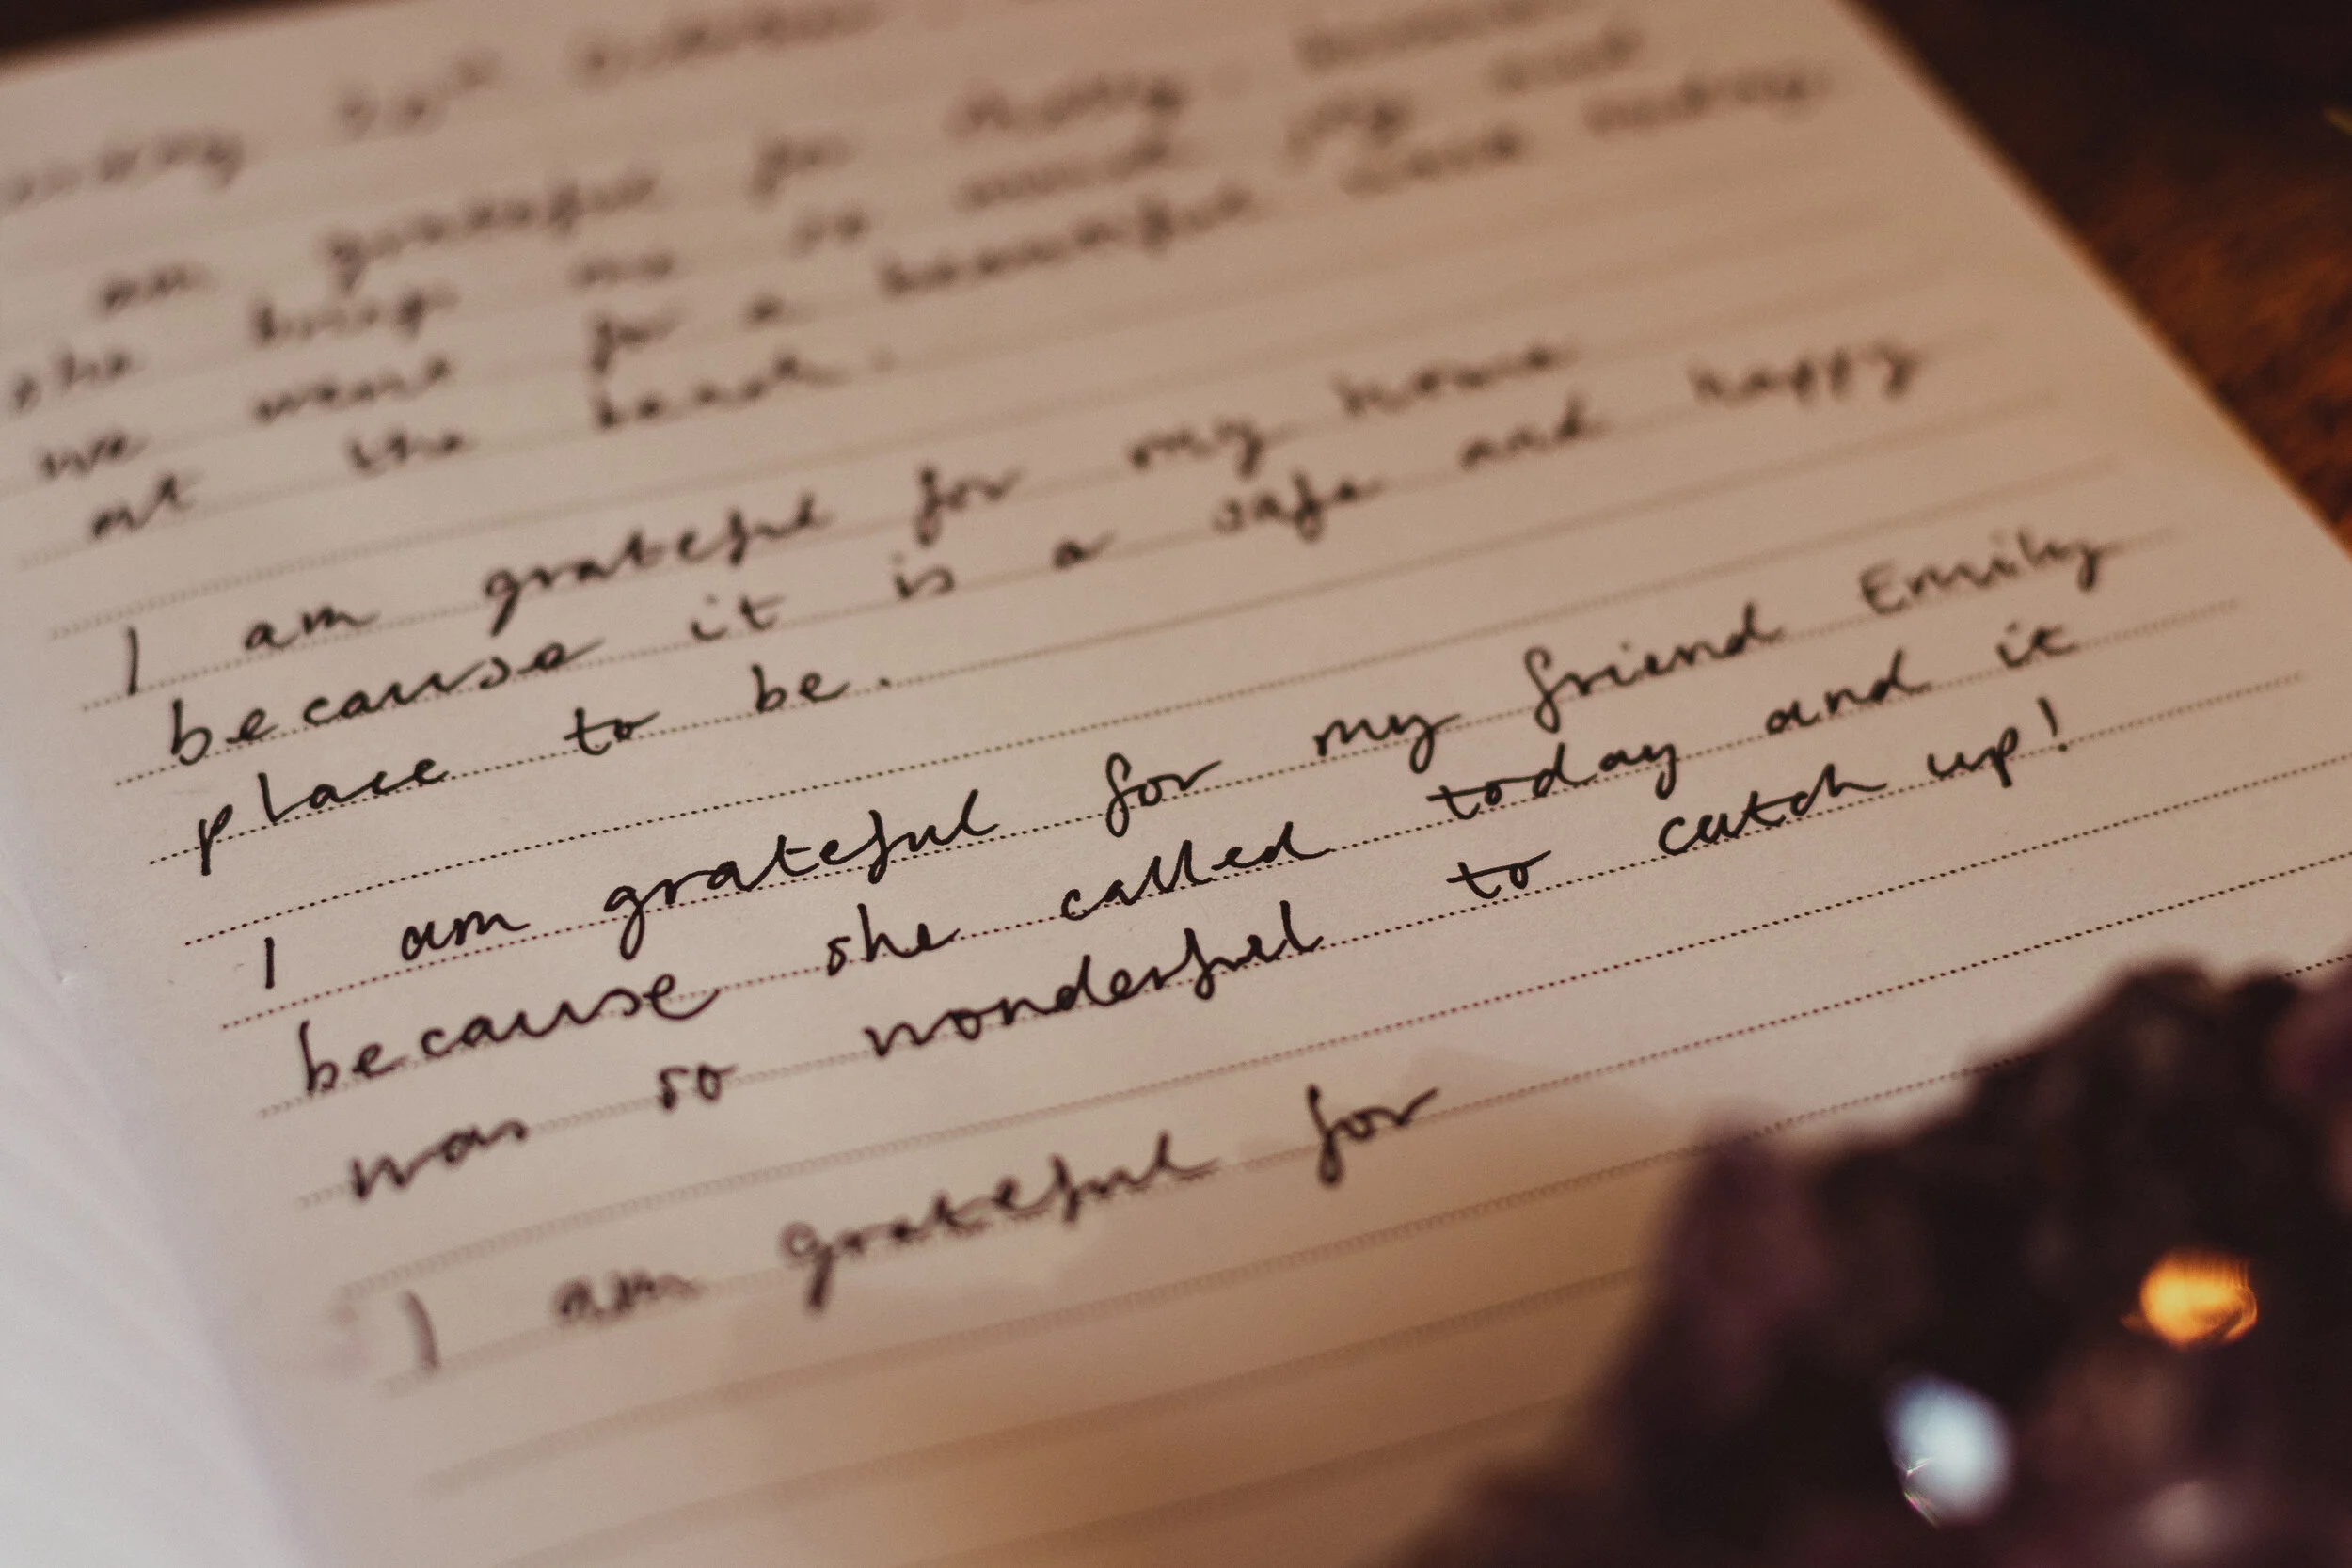 am grateful for
she brings me so much joy and
we went for a beautiful walk today
at the beach.
I am grateful for my home
because it is a safe and happy
place to be.
I am grateful for my friend Emily
because she called today and it
was so wonderful to catch up!
I am grateful for